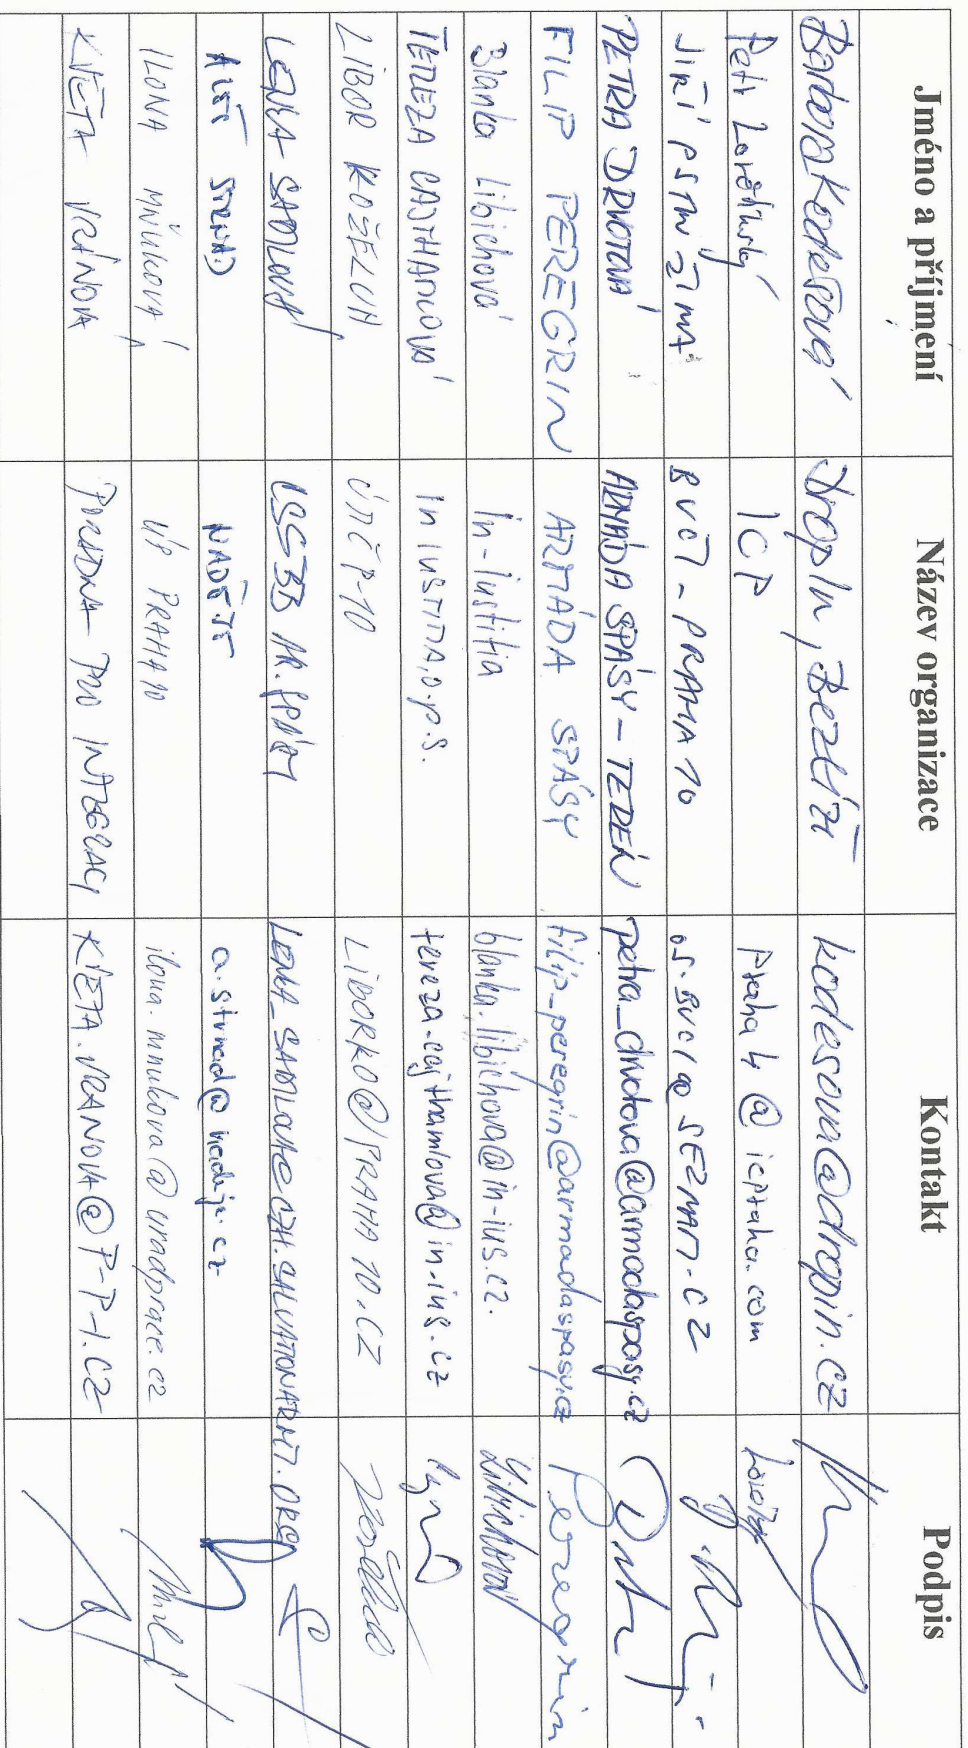 Jméno a příjmení Název organizace Kontakt Podpis
Barbora Kodešová Drop In, Bezlízt kodesova@dropin.cz
Petr ICP praha4@icpraha.com
JIŘÍ PSTRUŽINA BVČI - PRAHA 10 os.bvci@SEZNAM.CZ
PETRA DRVOTOVÁ ARMÁDA SPÁSY - TEREN petra_drvotova@armadaspasy.cz
FILIP PEREGRIN ARMÁDA SPÁSY filip_peregrin@armadaspasy.cz Peregrin
Blanka Libichová In-Iustitia blanka.libichova@in-ius.cz. Libichová
TEREZA CAJTHAMLOVÁ In IUSTITIA, o.p.s. tereza.cajthamlova@in-ius.cz
LIBOR KOŽELUH ÚMČ P-10 LIBORKO@PRAHA10.CZ
LENKA SADLOVÁ LENKA_SADLOVA@CZH.SALVATIONARMY.ORG
ALEŠ STRNAD NADĚJE a.strnad@nadeje.cz
ILONA MNUKOVÁ ÚP PRAHA 10 ilona.mnukova@uradprace.cz
KVĚTA VRÁNOVÁ PORADNA PRO INTEGRACI KVETA.VRANOVA@P-P-I.CZ